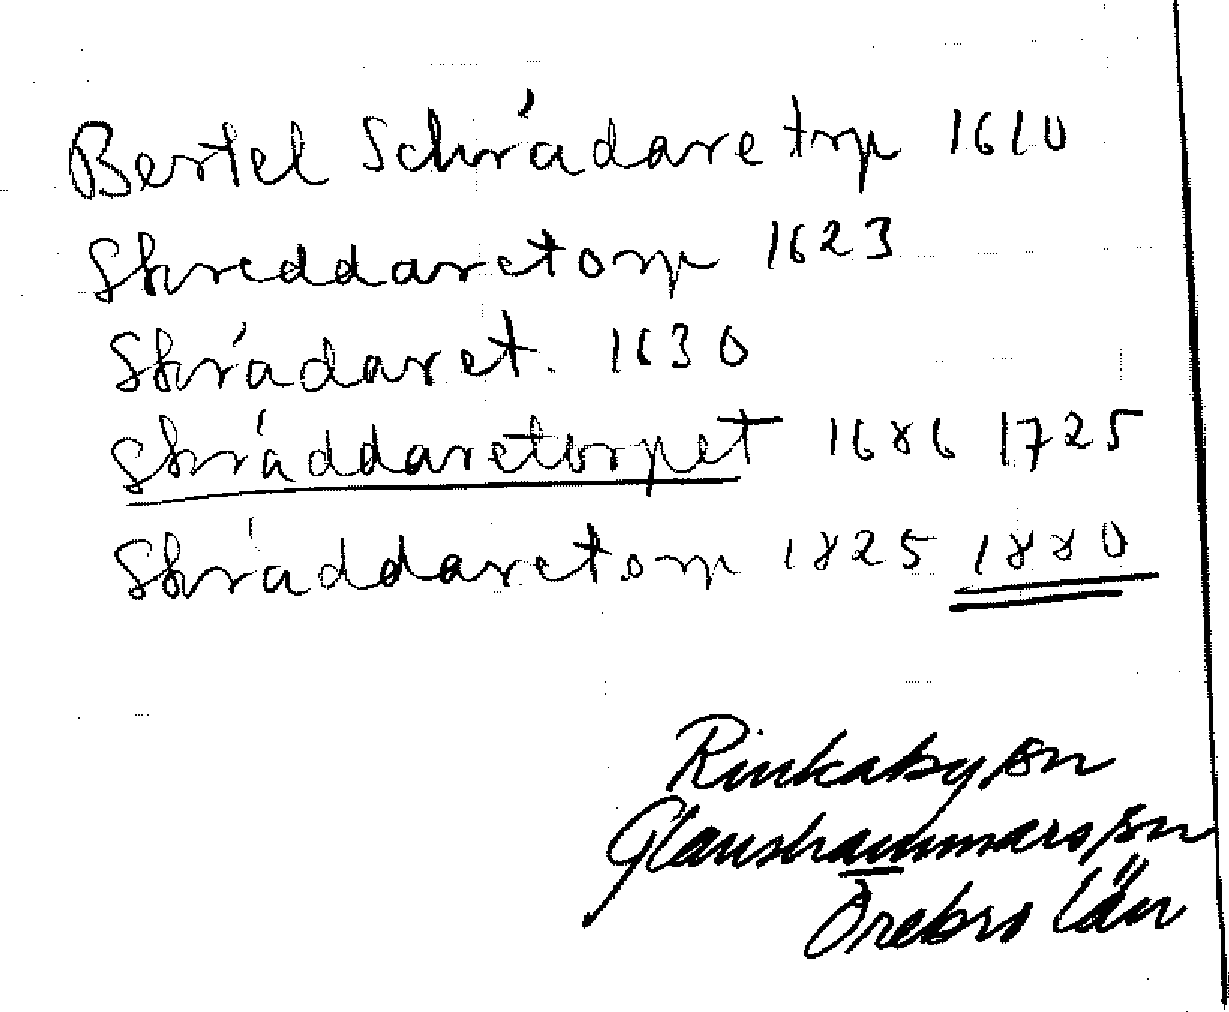 Bertel Schrádaretorp 1610
Skreddaretorp 1623
Skrádaret. 1630
Skráddaretorpet 1686 1725
Skráddaretorp 1825 1880
Rinkaby sn
Glanshammars sn
Örebro län